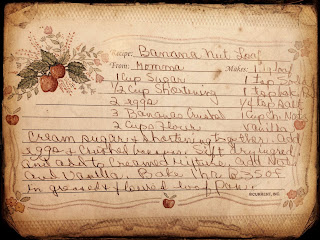 Recipe: Banana Nut Loaf
From: Momma Makes: 1 gloaf
1 Cup Sugar 1 tsp Soda
1/2 Cup Shortening 1 tsp bak.
2 eggs 1/4 tsp salt
3 Bananas Crushed 1 Cup Ch. Nuts
2 Cups Flour Vanilla
Cream sugar & shortening together. add
eggs & Crushed bananas. Sift dry ingred.
and add to Creamed Mixture. add Nuts
and Vanilla. Bake 1 hr @ 350°F
in greased & floured loaf Pan.
©CURRENT, INC.